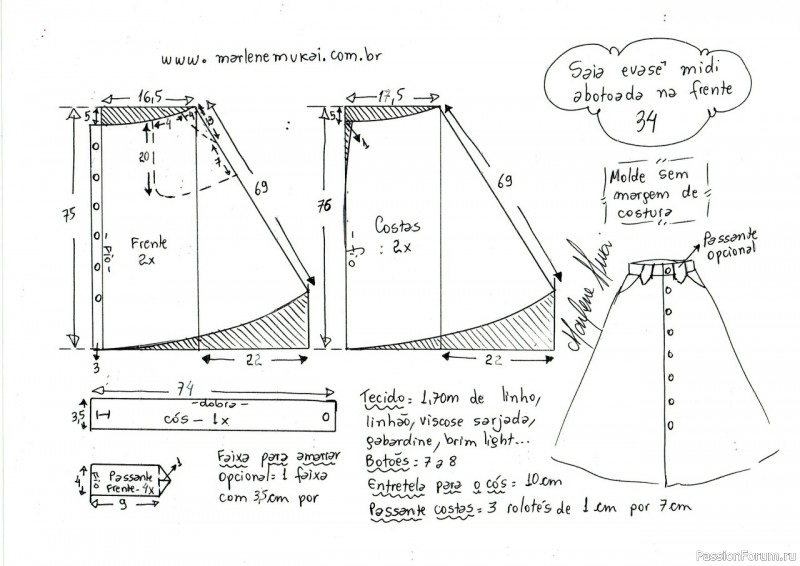 www.marlenemukai.com.br
Saia evasê midi
abotoada na frente
34
16,5
5
4
4
3
7
20
75
69
Fio
Frente
2x
22
3
17,5
5
1
76
69
Costas
: 2x
Fio
22
Molde sem
margem de
costura
Marlene Mukai
Passante
opcional
74
3,5
-dobra-
cós - 1x
4
Fio
Passante
Frente-4x
1
9
Faixa para amarrar
opcional= 1 faixa
com 3,5cm por
Tecido= 1,70m de linho,
linhão, viscose sarjada,
gabardine, brim light...
Botões= 7 a 8
Entretela para o cós= 10cm
Passante costas= 3 rolotés de 1cm por 7cm
PassionForum.ru